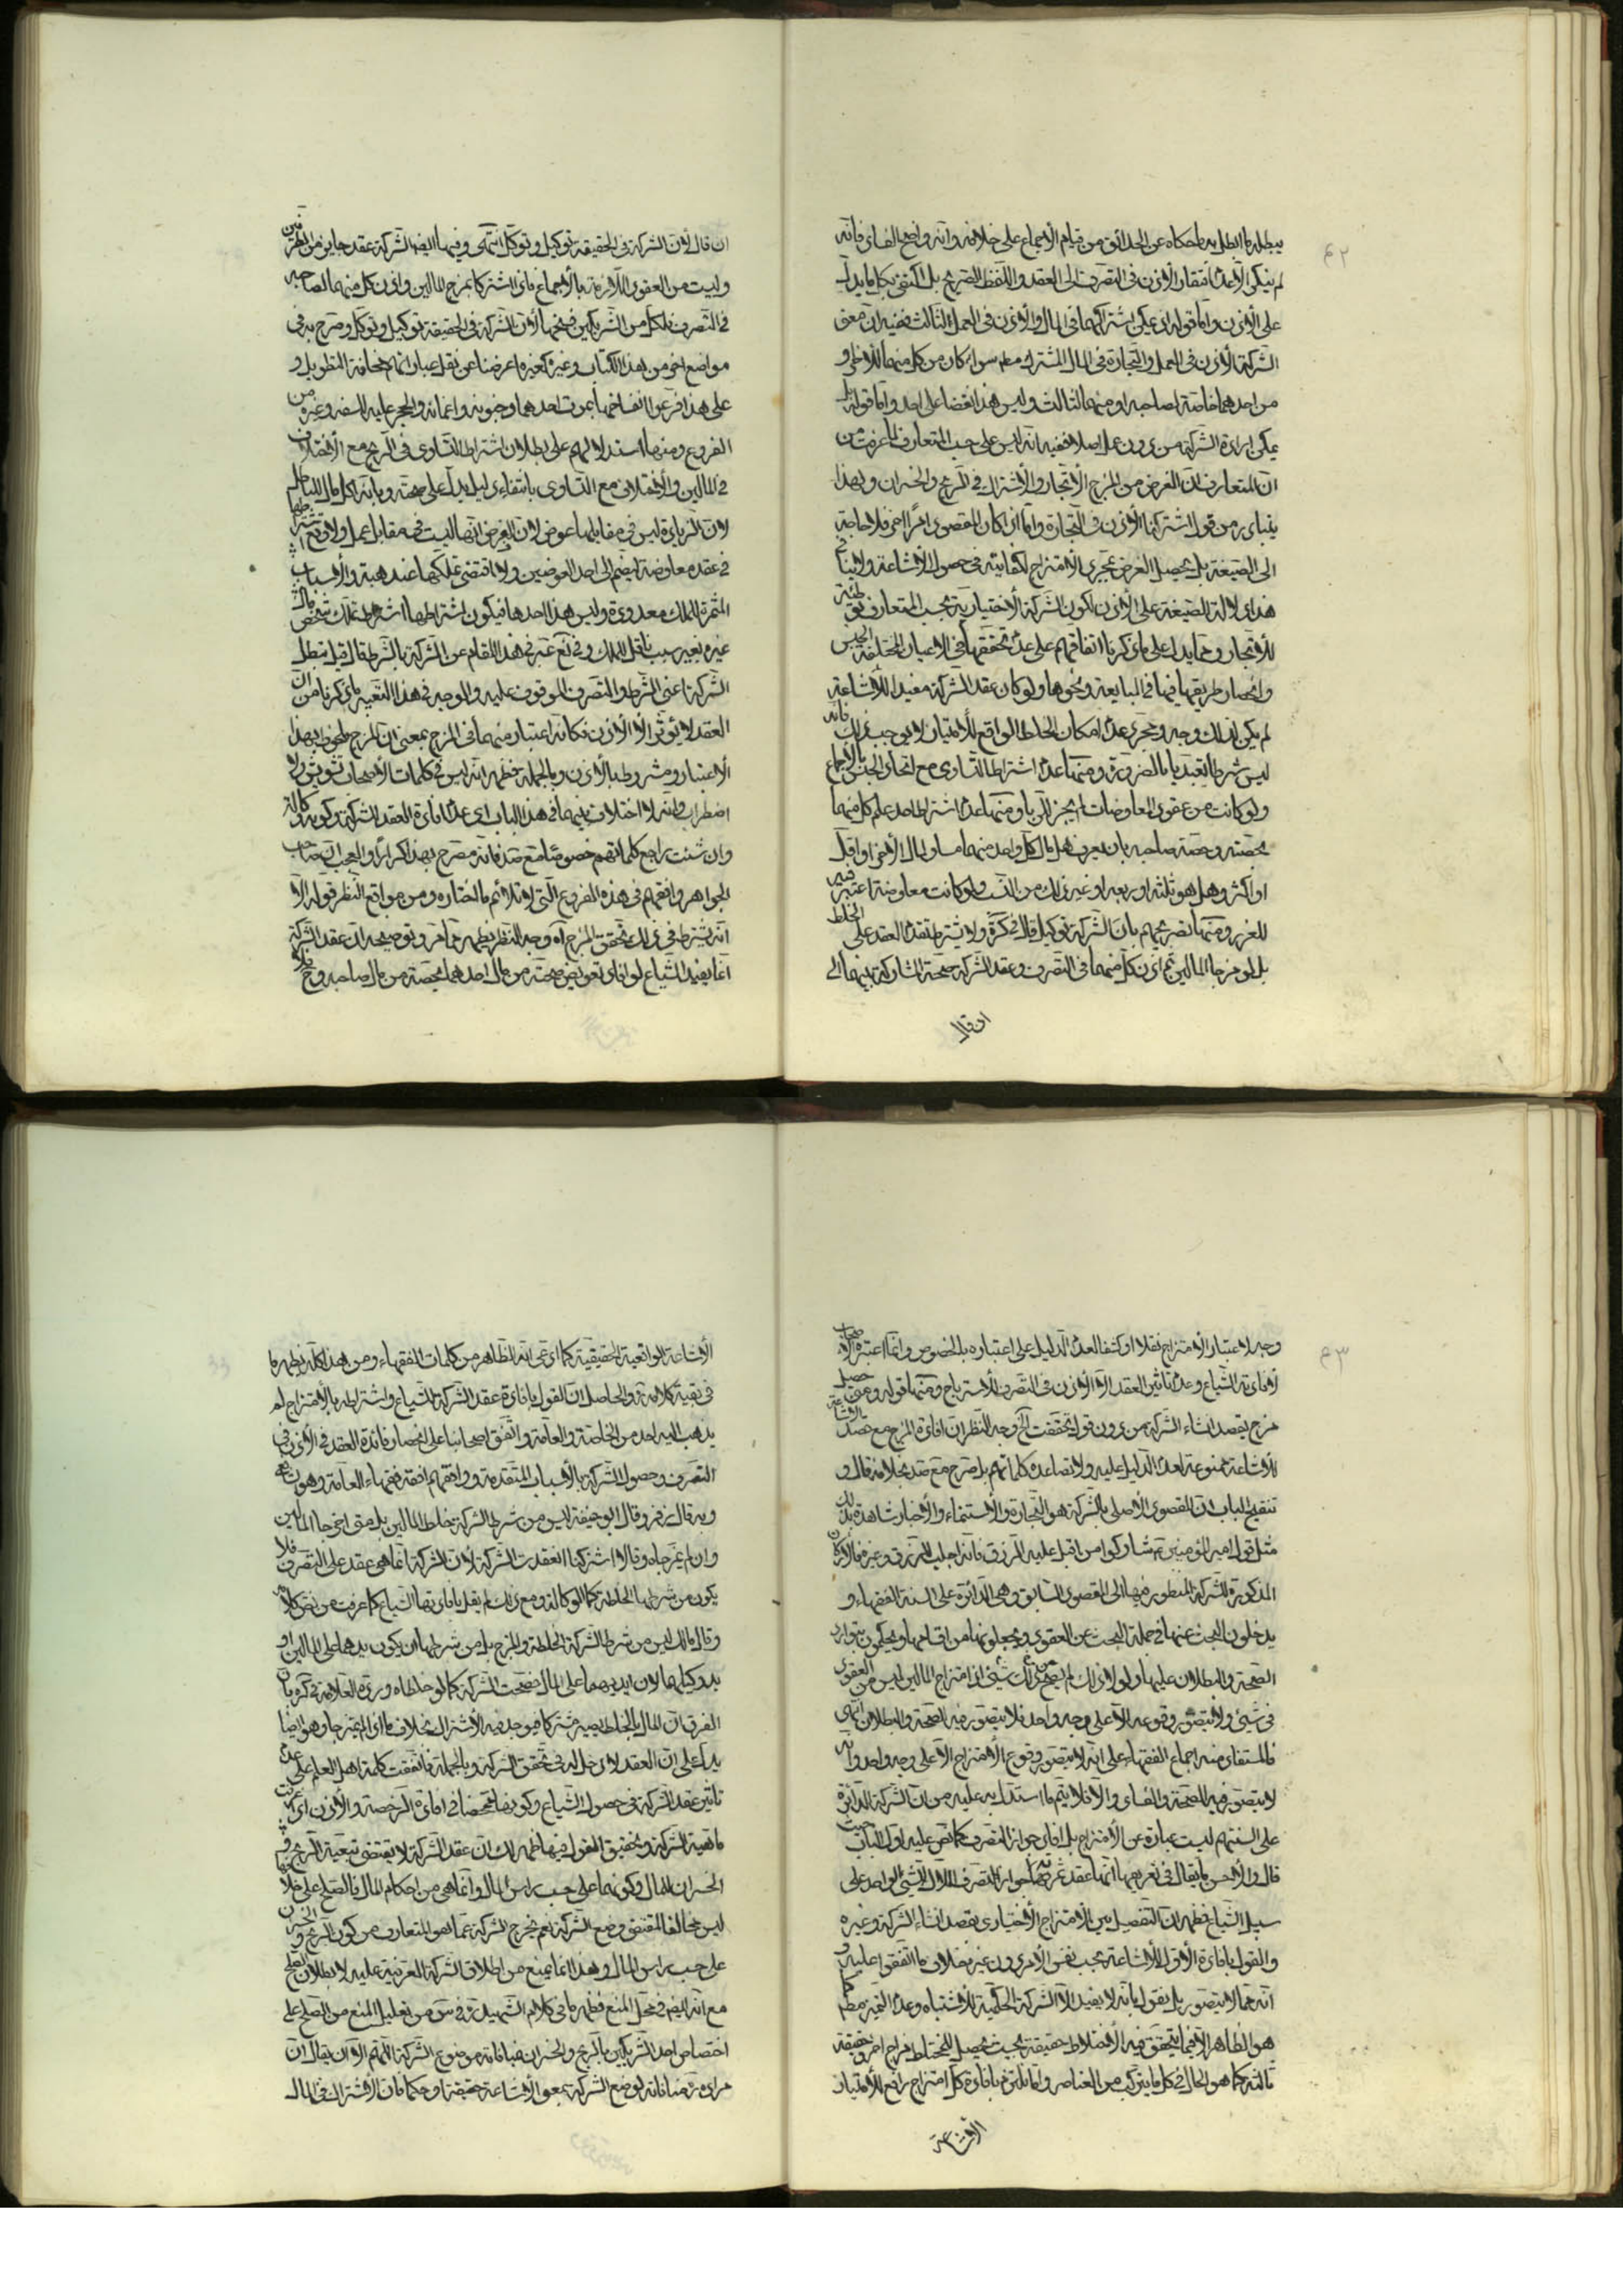 ٤٢
يبطله ما ابطل به ما حكاه عن الحدائق من قيام الاجماع على خلافه وانه واضح الفساد فانه
لم ينكر الا عدم افتقار الاذن في التصرف الى العقد واللفظ الصريح بل اكتفى بكل ما يدل
على الاذن واما قوله اذ يمكن اشتراكهما في المال والاذن في العمل لثالث ففيه ان معنى
الشركة الاذن في العمل والتجارة في المال المشترك مطلقا سواء كان من كل منهما للاخر او
من احدهما خاصة لصاحبه او منهما لثالث وليس هذا نقضا على احد واما قوله بل
يمكن ارادة الشركة من دون عمل اصلا ففيه انه ليس على حسب المتعارف لما عرفت من
ان المتعارف ان الغرض من المزج الاتجار والاشتراك في الربح والخسران وبهذا
يتبادر من قول اشتركنا الاذن في التجارة واما اذا كان المقصود امرا اخر فلا حاجة
الى الصيغة بل يحصل الغرض بمجرد الامتزاج لكفايته في حصول الاشاعة ولا ينافي
هذا دلالة الصيغة على الاذن لكون الشركة الاختيارية بحسب المتعارف توطئة
للاتجار ومما يدل على ما ذكرنا اتفاقهم على عدم تحققها في الاعيان المختلفة الجنس
وانحصار طريقها فيها في المبايعة ونحوها ولو كان عقد الشركة مفيدا للاشاعة
لم يكن لذلك وجه ومجرد عدم امكان الخلط الواقع للامتياز لا يوجب ذلك فانه
ليس شرطا تعبديا بالضرورة ومنها عدم اشتراط التساوي مع اتحاد الجنس بالاجماع
ولو كانت من عقود المعاوضات لم يجز للربا ومنها عدم اشتراط احد علم كل منهما
بحصته وحصة صاحبه بان يعرف هل مال كل واحد منهما مساو لمال الاخر او اقل
او اكثر وهل هو ثلثه او ربعه او غير ذلك من النسب ولو كانت معاوضة اعتبر فيه
للغرر ومنها تصريحهم بان الشركة توكيل قال في كرة ولا يشترط تقدم العقد على الخلط
بل لو مزجا المالين ثم اذن كل منهما في التصرف وعقد الشركة صحت المشاركة بينهما الى
ان قال
ان قال لان الشركة في الحقيقة توكيل وتوكل انتهى وفيها ايضا الشركة عقد جايز من الطرفين
وليست من العقود اللازمة بالاجماع فاذا اشتركا بمزج المالين واذن كل منهما لصاحبه
في التصرف فلكل من الشريكين فسخها لان الشركة في الحقيقة توكيل وتوكل وصرح به في
مواضع اخر من هذا الكتاب وغيره كغيره اعرضنا عن نقل عباراتهم مخافة التطويل و
على هذا فرعوا انفساخها بموت احدهما وجنونه واغمائه والحجر عليه للسفه وغيره من
الفروع ومنها استدلالهم على بطلان اشتراط التساوي في الربح مع الاختلاف
في المالين والاختلاف مع التساوي بانتفاء دليل يدل على صحته وبانه اكل مال بالباطل
لان الزيادة ليس في مقابلها عوض لان الفرض انها ليست في مقابل عمل ولا وقع اشتراطها
في عقد معاوضة ليضم الى احد العوضين ولا اقتضى تملكها عقد هبة والاسباب
المثمرة للملك معدودة وليس هذا احدها فيكون اشتراطها اشتراط تملك شخص مال
غيره بغير سبب ناقل للملك وفي لك عبر في هذا المقام عن الشركة بالشرط فقال قيل فتبطل
الشركة اعني الشرط والتصرف الموقوف عليه والوجه في هذا التعبير ما ذكرنا من ان
العقد لا يؤثر الا الاذن فكانه اعتبار منهما في المزج بمعنى ان المزج ملحوظ بهذا
الاعتبار ومشروط بالاذن وبالجملة فظهر انه ليس في كلمات الاصحاب تشويش ولا
اضطراب وانه لا اختلاف بينهما في هذا الباب اي عدم افادة العقد الشركة وكونه وكالة
وان شئت راجع كلماتهم خصوصا مع صد فانه مصرح بهذا كرارا والعجب ان صاحب
الجواهر وافقهم في هذه الفروع التي لا تلائم ما اختاره ومن مواقع النظر قوله الا
انه يشترط في ذلك تحقق المزج اه وجه النظر يظهر مما مر وتوضيحه ان عقد الشركة
انما يفيد الشياع لو افاد تعويض حصة من مال احدهما بحصة من مال صاحبه وح فلا
٤٣
وجه لاعتبار الامتزاج نقلا او كشفا لعدم الدليل على اعتباره بالخصوص وانما اعتبره الاصحاب
لافادته الشياع وعدم تاثير العقد الا الاذن في التصرف للاسترباح ومنها قوله ومتى حصل
مزج بقصد انشاء الشركة من دون قول تحققت الخ وجه النظر ان افادة المزج مع قصد الاشاعة
للاشاعة ممنوعة لعدم الدليل عليه ولا تساعده كلماتهم بل صرح مع صد بخلافه قال و
تنقيح الباب ان المقصود الاصلي بالشركة هو التجارة والاستنماء والاخبار شاهدة بذلك
مثل قول امير المؤمنين ع شاركوا من اقبل عليه الرزق فانه اجلب للرزق وغيره فالاركان
المذكورة للشركة المنظور فيها الى المقصود السابق وهي الدائرة على السنة الفقهاء و
يدخلون البحث عنها في جملة البحث عن العقود ويجعلونها من اقسامها ويحكمون بتوارد
الصحة والبطلان عليها ولولا ذلك لم يصح من ذلك شيء اذ امتزاج المالين ليس من العقود
في شيء ولا يتصور وقوعه الا على وجه واحد فلا يتصور فيه الصحة والبطلان انتهى
فالمستفاد منه اجماع الفقهاء على انه لا يتصور وقوع الامتزاج الا على وجه واحد وانه
لا يتصور فيه الصحة والفساد والا فلا يتم ما استدل به عليه من ان الشركة الدائرة
على السنتهم ليست عبارة عن الامتزاج بل افاد جواز التصرف كما نص عليه اول الباب حيث
قال والاحسن ما يقال في تعريفها انها عقد ثمرته جواز التصرف للملاك لشيء الواحد على
سبيل الشياع فظهر ان التفصيل بين الامتزاج الاختياري بقصد انشاء الشركة وغيره
والقول بافادة الاول للاشاعة بحسب نفس الامر دون غيره خلاف ما اتفقوا عليه و
انه مما لا يتصور بل يقول بانه لا يفيد الا الشركة الحكمية للاشتباه وعدم التميز مطلقا كما
هو الظاهر الا فيما يتحقق فيه الاختلاط حقيقة بحيث يحصل للمختلط مزاج اخر وحقيقة
ثالثة كما هو الحال في كل ما يتركب من العناصر واما نلتزم بافادة كل امتزاج رافع للامتياز
الاشاعة
الاشاعة الواقعية الحقيقية كما ادعى انه الظاهر من كلمات الفقهاء ومن هذا كله يظهر ما
في بقية كلامه والحاصل ان القول بافادة عقد الشركة الشياع واشتراطه بالامتزاج لم
يذهب اليه احد من الخاصة والعامة واتفق اصحابنا على انحصار فائدة العقد في الاذن في
التصرف وحصول الشركة بالاسباب المتقدمة ووافقهم افقه فقهاء العامة وهو شافعي
وبه قال زفر وقال ابو حنيفة ليس من شرط الشركة خلط المالين بل متى اخرجا المالين
وان لم يمزجاه وقالا اشتركنا انعقدت الشركة لان الشركة انما هي عقد على التصرف فلا
يكون من شرطها الخلطة كالوكالة ومع ذلك لم يقل بافادتها الشياع كما عرفت من نص كلامه
وقال مالك ليس من شرط الشركة الخلطة والمزج بل من شرطها ان يكون يدهما على المالين او
يد وكيلهما لان ايديهما على المال فصحت الشركة كما لو خلطاه ورده العلامة في كرة بان
الفرق ان المال بالخلط يصير مشتركا فيوجد فيه الاشتراك بخلاف ما اذا لم يمتزجا وهو ايضا
يدل على ان العقد لا دخل له في تحقق الشركة وبالجملة فاتفقت كلمة اهل العلم على عدم
تاثير عقد الشركة في حصول الشياع وكونها متمحضا في افادة الرخصة والاذن اذا عرفت
ماهية الشركة وتحقيق القول فيها ظهر لك ان عقد الشركة لا يقتضي تبعية الربح و
الخسران للمال وكونهما على حسب راس المال وانما هي من احكام المال فالصلح على خلافها
ليس مخالفا لمقتضى وضع الشركة نعم يخرج الشركة عما هو المتعارف من كون الربح والخسران
على حسب راس المال وهذا انما يمنع من اطلاق الشركة العرفية عليه لا بطلان الصلح
مع انه ايضا في محل المنع فظهر ما في كلام الشهيد ره في س من تعليل المنع من الصلح على
اختصاص احد الشريكين بالربح والخسران بمنافاته موضوع الشركة اللهم الا ان يقال ان
مراده منافاته لوضع الشركة بمعنى الاشاعة حقيقة او حكما فان الاشتراك في المال